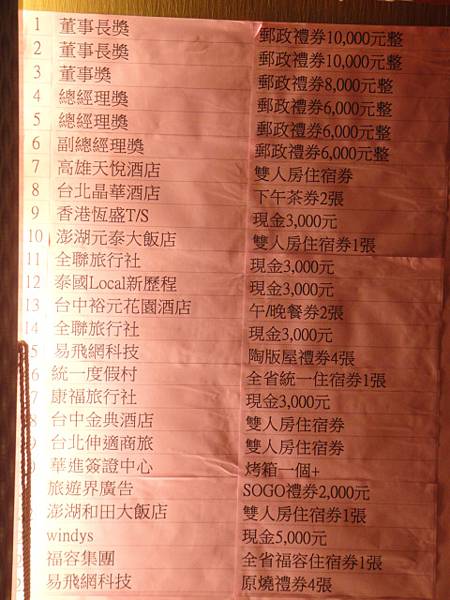 1 董事長獎 郵政禮券10,000元整
2 董事長獎 郵政禮券10,000元整
3 董事獎 郵政禮券8,000元整
4 總經理獎 郵政禮券6,000元整
5 總經理獎 郵政禮券6,000元整
6 副總經理獎 郵政禮券6,000元整
7 高雄天悅酒店 雙人房住宿券
8 台北晶華酒店 下午茶券2張
9 香港恆盛T/S 現金3,000元
10 澎湖元泰大飯店 雙人房住宿券1張
11 全聯旅行社 現金3,000元
12 泰國Local新歷程 現金3,000元
13 台中裕元花園酒店 午/晚餐券2張
14 全聯旅行社 現金3,000元
5 易飛網科技 陶版屋禮券4張
6 統一度假村 全省統一住宿券1張
7 康福旅行社 現金3,000元
8 台中金典酒店 雙人房住宿券
9 台北伸適商旅 雙人房住宿券
華進簽證中心 烤箱一個+
旅遊界廣告 SOGO禮券2,000元
澎湖和田大飯店 雙人房住宿券1張
windys 現金5,000元
福容集團 全省福容住宿券1張
易飛網科技 原燒禮券4張